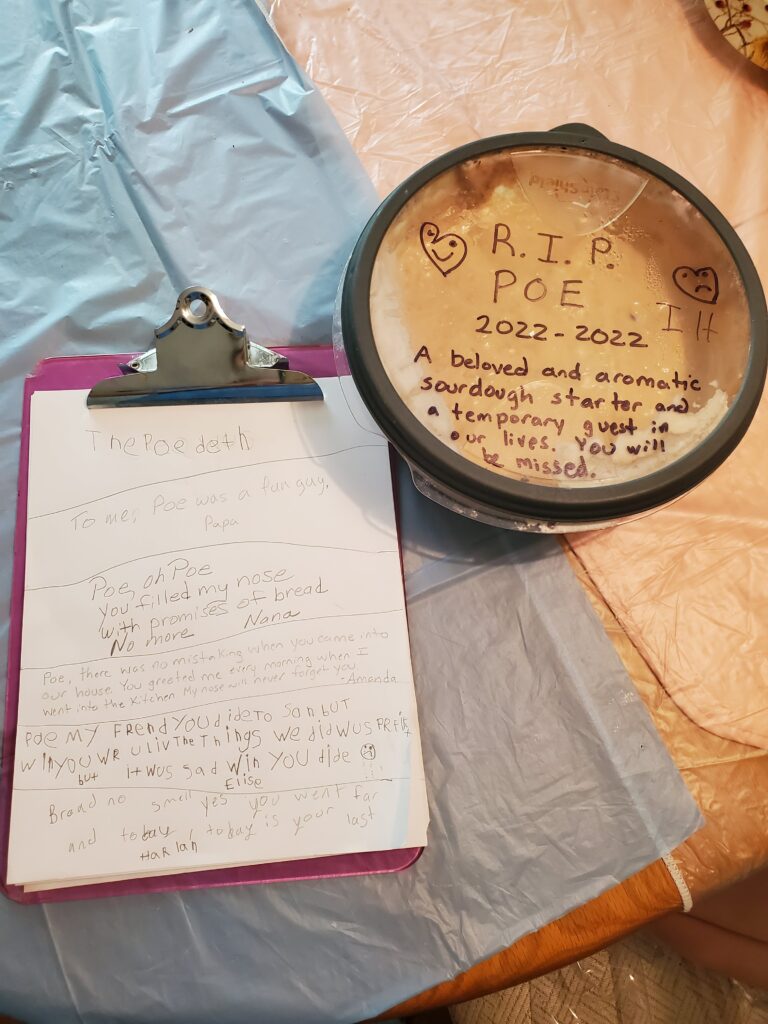 The Poe deth
To me, Poe was a fun guy.
Papa
Poe, oh Poe
You filled my nose
with promises of bread
No more Nana
Poe, there was no mistaking when you came into
our house. You greeted me every morning when I
went into the kitchen. My nose will never forget you
-Amanda
POE MY FREND YOU dide To SonbUT
WiNYOU WR ULIV The ThiNgs we did WUS
but itwus sad WiN YOU dide
Elise
Bread no smell yes you went far
and tobay, tobay is your last
HaRlan
R.I.P.
POE
2022-2022
I H
A beloved and aromatic
sourdough starter and
a temporary guest in
our lives. You will
be missed.